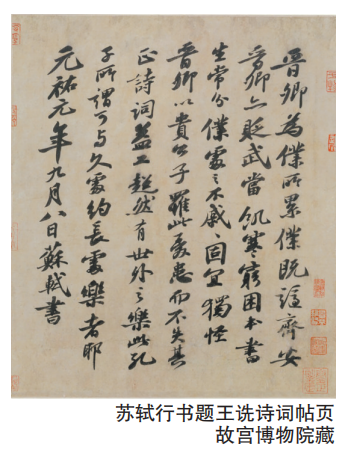 晉卿為僕所累僕既謫齊安
晉卿亦貶武當飢寒窮困本書
生常分僕處之不戚戚固宜獨怪
晉卿以貴公子罹此憂患而不失其
正詩詞益工超然有世外之樂此孔
子所謂可与久處約長處樂者耶
元祐元年九月八日蘇軾書
苏轼行书题王诜诗词帖页
故宫博物院藏